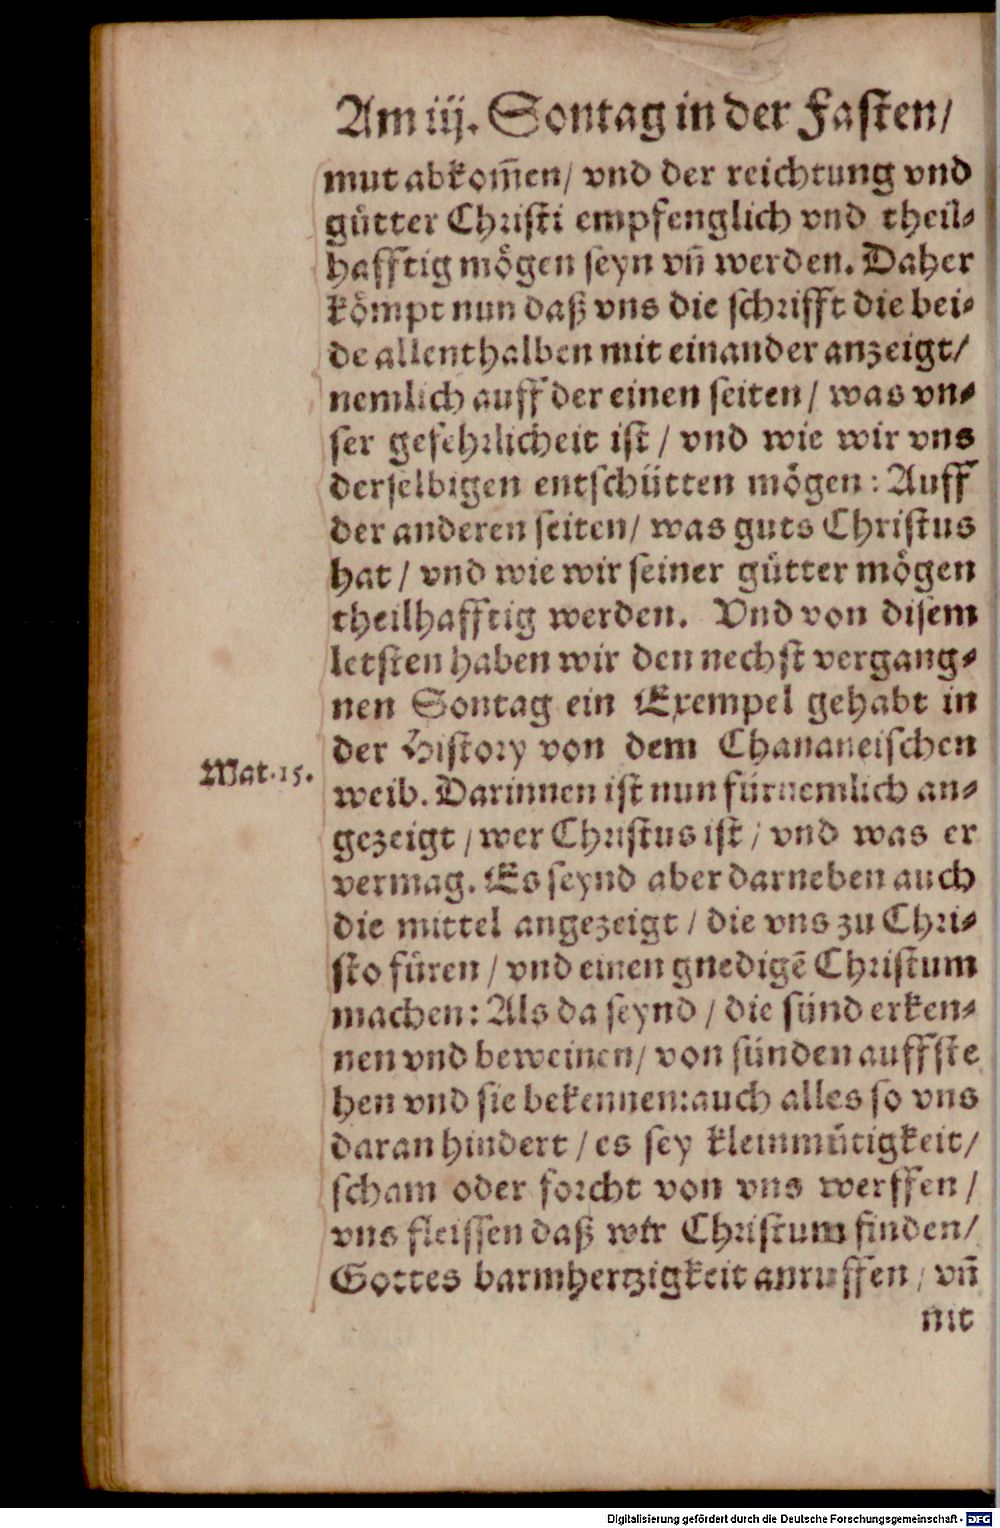 Am iij. Sontag in der Fasten/
mut abkom̃en/ vnd der reichtung vnd
gütter Christi empfenglich vnd theil⸗
hafftig mögen seyn vñ werden. Daher
kömpt nun daß vns die schrifft die bei⸗
de allenthalben mit einander anzeigt/
nemlich auff der einen seiten / was vn⸗
ser gefehrlicheit ist / vnd wie wir vns
derselbigen entschütten mögen: Auff
der anderen seiten/ was guts Christus
hat / vnd wie wir seiner gütter mögen
theilhafftig werden. Vnd von disem
letsten haben wir den nechst vergang⸗
nen Sontag ein Exempel gehabt in
der History von dem Chananeischen
Mat.15.
weib. Darinnen ist nun fürnemlich an⸗
gezeigt / wer Christus ist / vnd was er
vermag. Es seynd aber darneben auch
die mittel angezeigt / die vns zu Chri⸗
sto füren / vnd einen gnedigẽ Christum
machen: Als da seynd / die sünd erken⸗
nen vnd beweinen/ von sünden auffste
hen vnd sie bekennen: auch alles so vns
daran hindert / es sey kleinmütigkeit/
scham oder forcht von vns werffen /
vns fleissen daß wir Christum finden/
Gottes barmhertzigkeit anruffen / vñ
nit
Digitalisierung gefördert durch die Deutsche Forschungsgemeinschaft - DFG